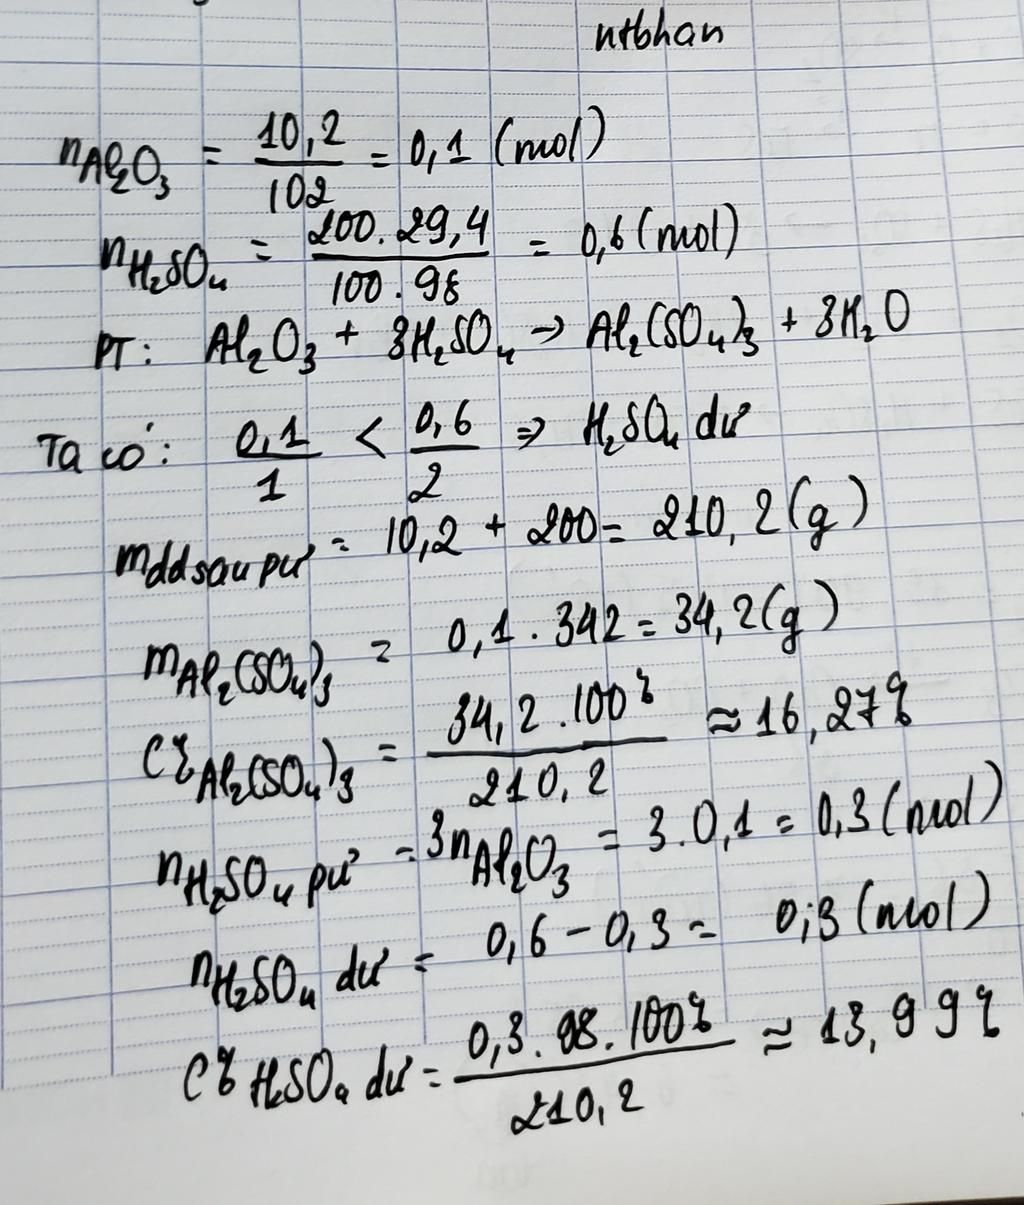 ntbhan
nAl₂O₃ = 10,2/102 = 0,1 (mol)
nH₂SO₄ = 200.29,4/100.98 = 0,6 (mol)
PT: Al₂O₃ + 3H₂SO₄ → Al₂(SO₄)₃ + 3H₂O
Ta có: 0,1/1 < 0,6/2 ⇒ H₂SO₄ dư
mddsaupư = 10,2 + 200 = 210,2 (g)
mAl₂(SO₄)₃ = 0,1 . 342 = 34,2 (g)
C%Al₂(SO₄)₃ = 34,2 .100%/210,2 ≈ 16,27%
nH₂SO₄ pư = 3nAl₂O₃ = 3.0,1 = 0,3 (mol)
nH₂SO₄ dư = 0,6 - 0,3 = 0,3 (mol)
C% H₂SO₄ dư = 0,3.98.100%/210,2 ≈ 13,99%